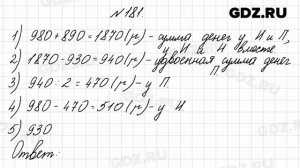 GDZ.RU
№ 181.
1) 980+890=1870(р)- сумма денег у И и П,
у И и Н вместе
2) 1870-930=940(р)- удвоенная сумма денег П
3) 940:2=470(р)- у П
4) 980-470=510(р)- у И
5) 930
Ответ:
GDZ.RU